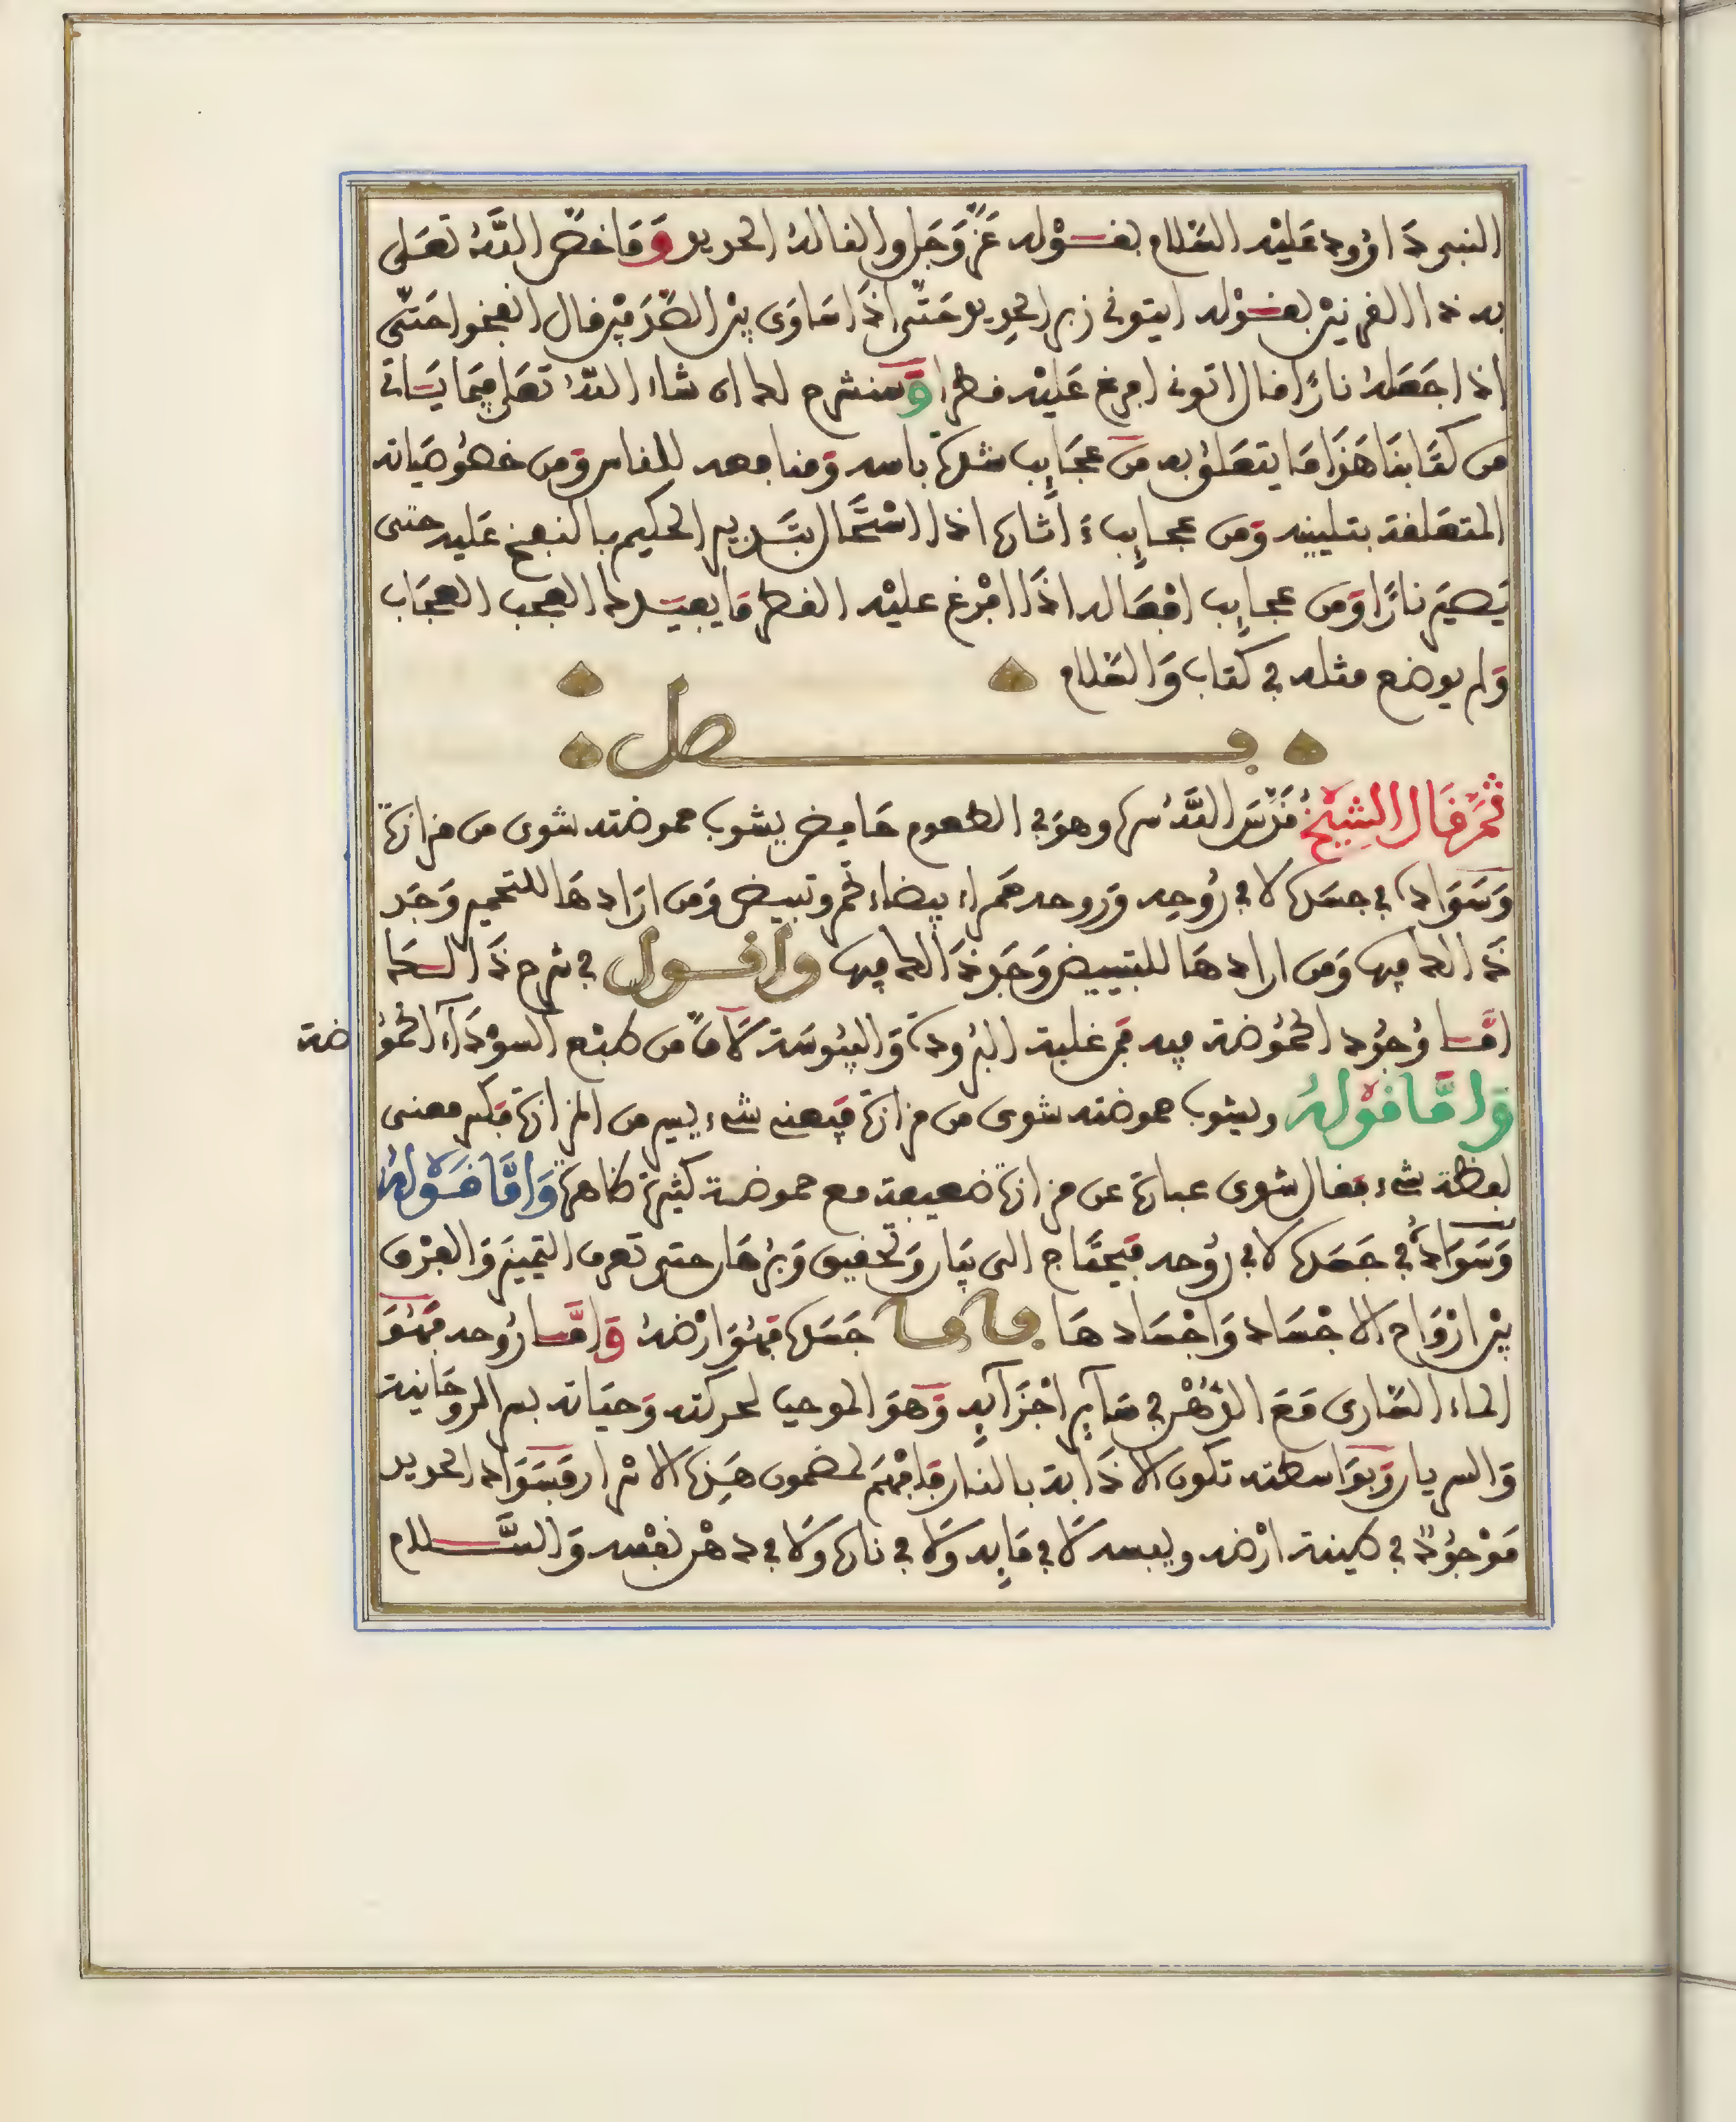 النبي داوود عليه السلام بقوله عز وجل والنا له الحديد وما خص الله تعلى
به ذا القرنين بقوله ايتوني زبر الحديد حتى اذا ساوى بين الصدفين قال انفخوا حتى
اذا جعله نارا قال اتوني افرغ عليه قطرا وسنشرح لك ان شاء الله تعلى فيما ياتي
من كتابنا هذا ما يتعلق به من عجايب شدة باسه ومنافعه للناس ومن خصوصياته
المتعلقة بتليينه ومن عجايب ءاثاره اذا استحال بتدبير الحكيم بالنفخ عليه حتى
يصير نارا ومن عجايب افعاله اذا افرغ عليه القطر ما يفيدك العجب العجاب
ولم يوضع مثله في كتاب والسلام
فصل
ثم قال الشيخ قدس الله سره وهو في الطعوم حامض يشوب حموضته شوى من مرارة
وسواده في جسده لا في روحه وروحه حمراء بيضاء تحمر وتبيض ومن ارادها للتحمير وجد
ذلك فيها ومن ارادها للتبييض وجد ذلك فيها واقول في شرح ذلك
اما وجود الحموضة فيه فمن غلبة البرودة واليبوسة لان من طبع السوداء الحموضة
واما قوله ويشوب حموضته شوى من مرارة فيعني شيء يسير من المرارة فكسر معنى
لفظة شيء فقال شوى عبارة عن مرارة ضعيفة مع حموضة كثيرة ظاهرة واما قوله
وسواده في جسده لا في روحه فيحتاج الى بيان وتحقيق وبرهان حتى تعرف التمييز والفرق
بين ارواح الاجساد واجسادها فاما جسده فهو ارضه واما روحه فهو
الماء السارى مع الدهن في ساير اجزايه وهو الموجب لحركته وحياته بسر الروحانية
والسريان وبواسطته تكون الاذابة بالنار فافهم لمضمون هذه الاسرار فسواد الحديد
موجود في طينة ارضه ويبسه لا في مايه ولا في ناره ولا في دهن نفسه والسلام